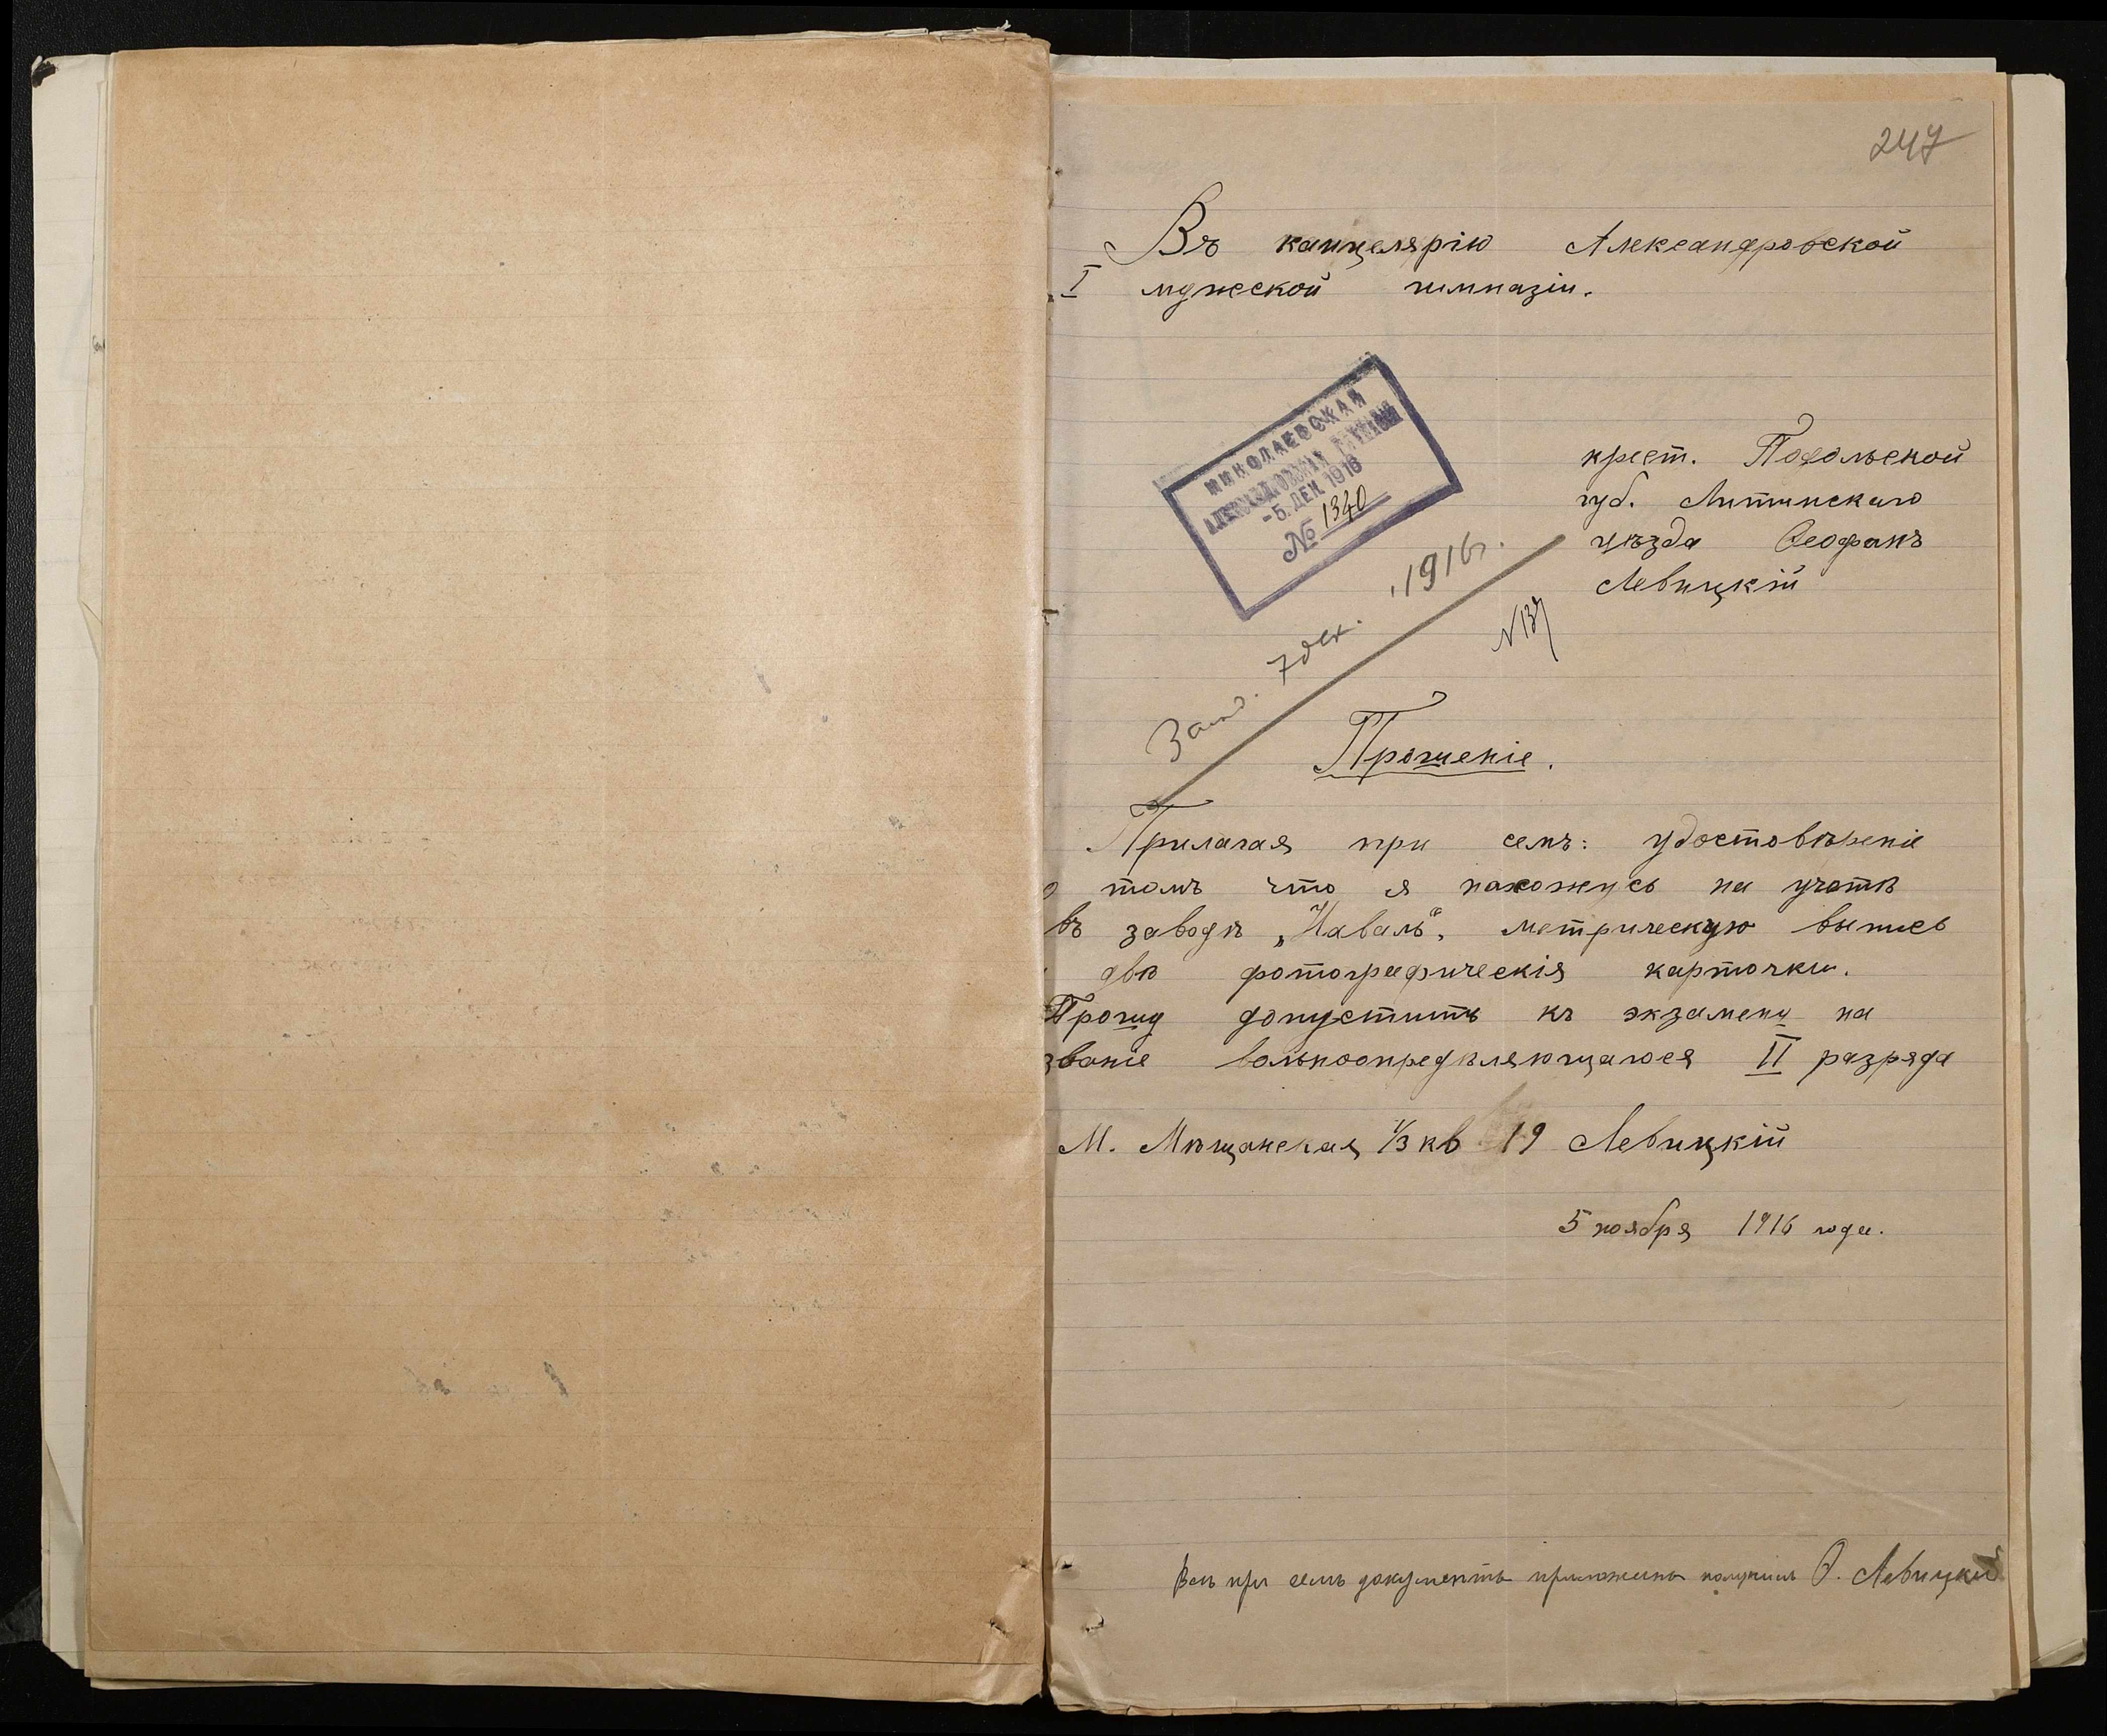 247
Въ канцелярію Александровской
I мужской гимназіи.
НИКОЛАЕВСКАЯ
АЛЕКСАНДРОВСКАЯ ГИМНАЗІЯ
-5. ДЕК. 1916
№ 1340
крест. Подольской
губ. Литинскаго
уѣзда Ѳеофанъ
Левицкій
7 дек. 1916 г.
Прошеніе.
Прилагая при семъ: удостовѣреніе
о томъ что я нахожусь на учетѣ
въ заводѣ „Наваль“, метрическую выпись
двѣ фотографическія карточки.
Прошу допустить къ экзамену на
званіе вольноопредѣляющагося II разряда
М. Мѣщанская 1/3 кв 19 Левицкій
5 ноября 1916 года.
Всѣ при семъ документы приложены получилъ Ѳ. Левицкій